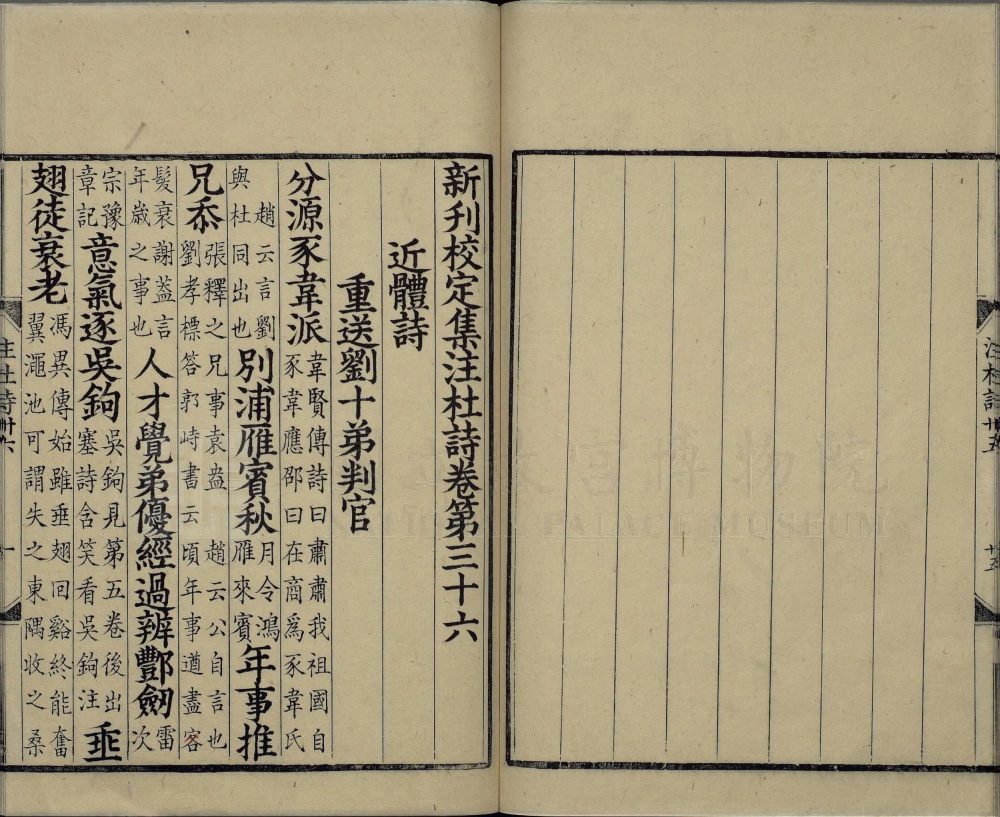 注杜詩卅五
新刋校定集注杜詩卷第三十六
近體詩
重送劉十弟判官
分源豕韋派韋賢傳詩曰肅肅我祖國自豕韋應邵曰在商爲豕韋氏
趙云言劉與杜同出也別浦雁賓秋月令鴻雁來賓年事推
兄忝張釋之兄事袁盎趙云公自言也劉孝標答郭峙書云頃年事遒盡客
髮衰謝蓋言年歲之事也人才覺弟優經過辨酆劒雷次
宗豫章記意氣逐吳鉤吳鉤見第五卷後出塞詩含笑看吳鉤注垂
翅徒衰老馮異傳始雖垂翅回谿終能奮翼澠池可謂失之東隅收之桑
注杜詩卅六
一
故宮博物院
PALACE MUSEUM